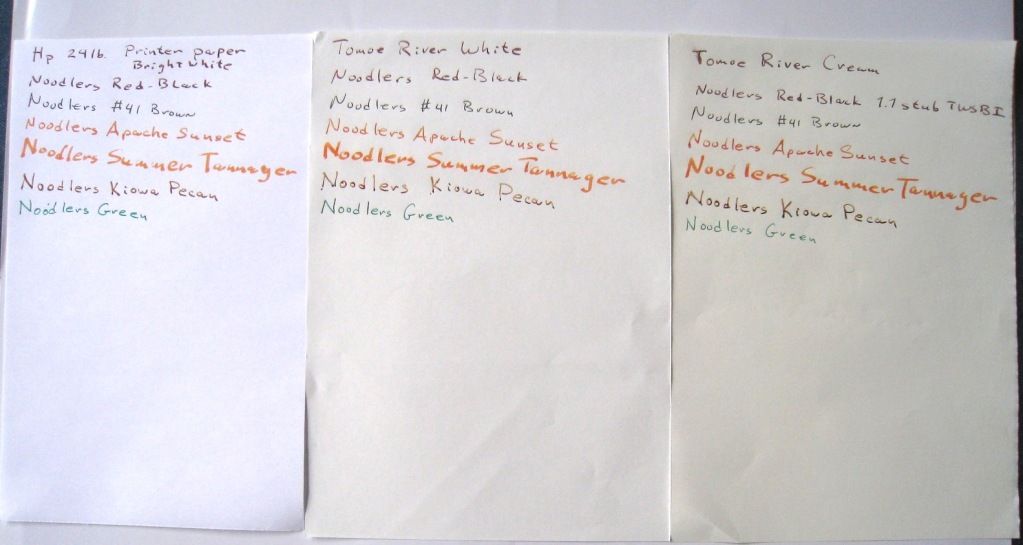 Hp 24lb. Printer paper
Bright white
Noodlers Red-Black
Noodlers #41 Brown
Noodlers Apache Sunset
Noodlers Summer Tannager
Noodlers Kiowa Pecan
Noodlers Green
Tomoe River White
Noodlers Red-Black
Noodlers #41 Brown
Noodlers Apache Sunset
Noodlers Summer Tannager
Noodlers Kiowa Pecan
Noodlers Green
Tomoe River Cream
Noodlers Red-Black 1.1 stub TWSBI
Noodlers #41 Brown
Noodlers Apache Sunset
Noodlers Summer Tannager
Noodlers Kiowa Pecan
Noodlers Green